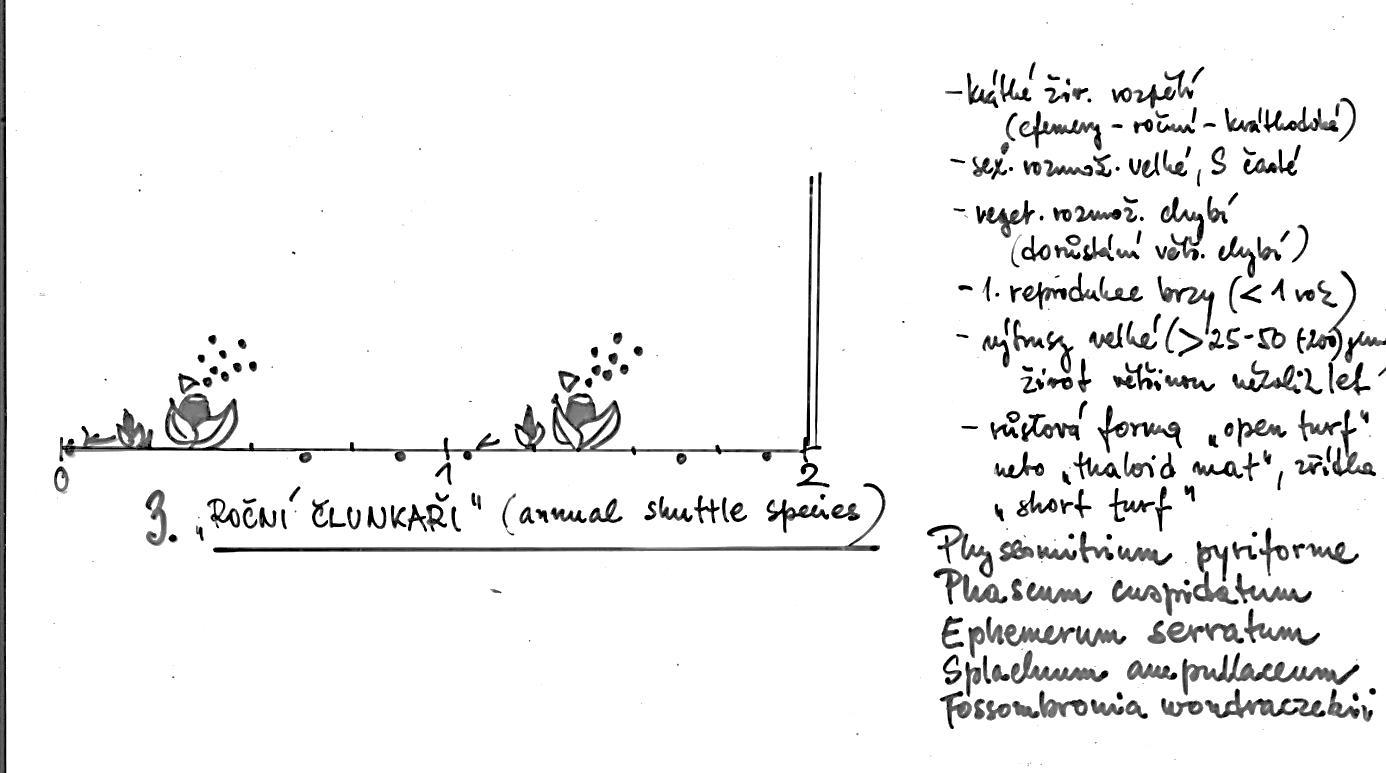 0 1 2
3. „ROČNÍ ČLUNKAŘI“ (annual shuttle species)
- krátké živ. rozpětí
(efemery - roční - krátkodobé)
- sex. rozmnož. velké, S časté
- veget. rozmnož. chybí
(dorůstání větš. chybí)
- 1. reprodukce brzy (< 1 rok)
- výtrusy velké (> 25-50 (-200)
život většinou něžoliz let
- růstová forma „open turf“
nebo „thaloid mat“, zřídka
„short turf“
Physcomitrium pyriforme
Phascum cuspidatum
Ephemerum serratum
Splachnum ampullaceum
Fossombronia wondraczekii